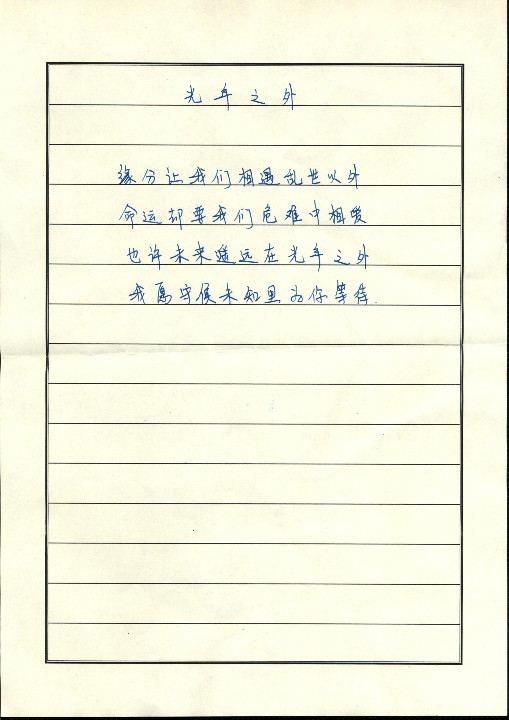 光年之外
缘分让我们相遇乱世以外
命运却要我们危难中相爱
也许未来遥远在光年之外
我愿守候未知里为你等待.